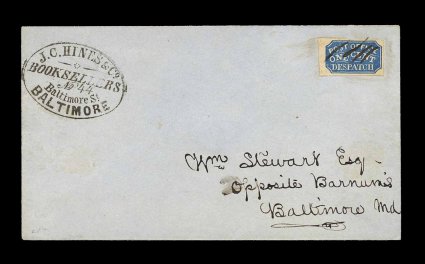 J.C. HINES & Co
BOOKSELLERS
No 44
Baltimore St
BALTIMORE
POST OFFICE
ONE CENT
DESPATCH
Wm Stewart Esq -
Opposite Barnum's
Baltimore Md